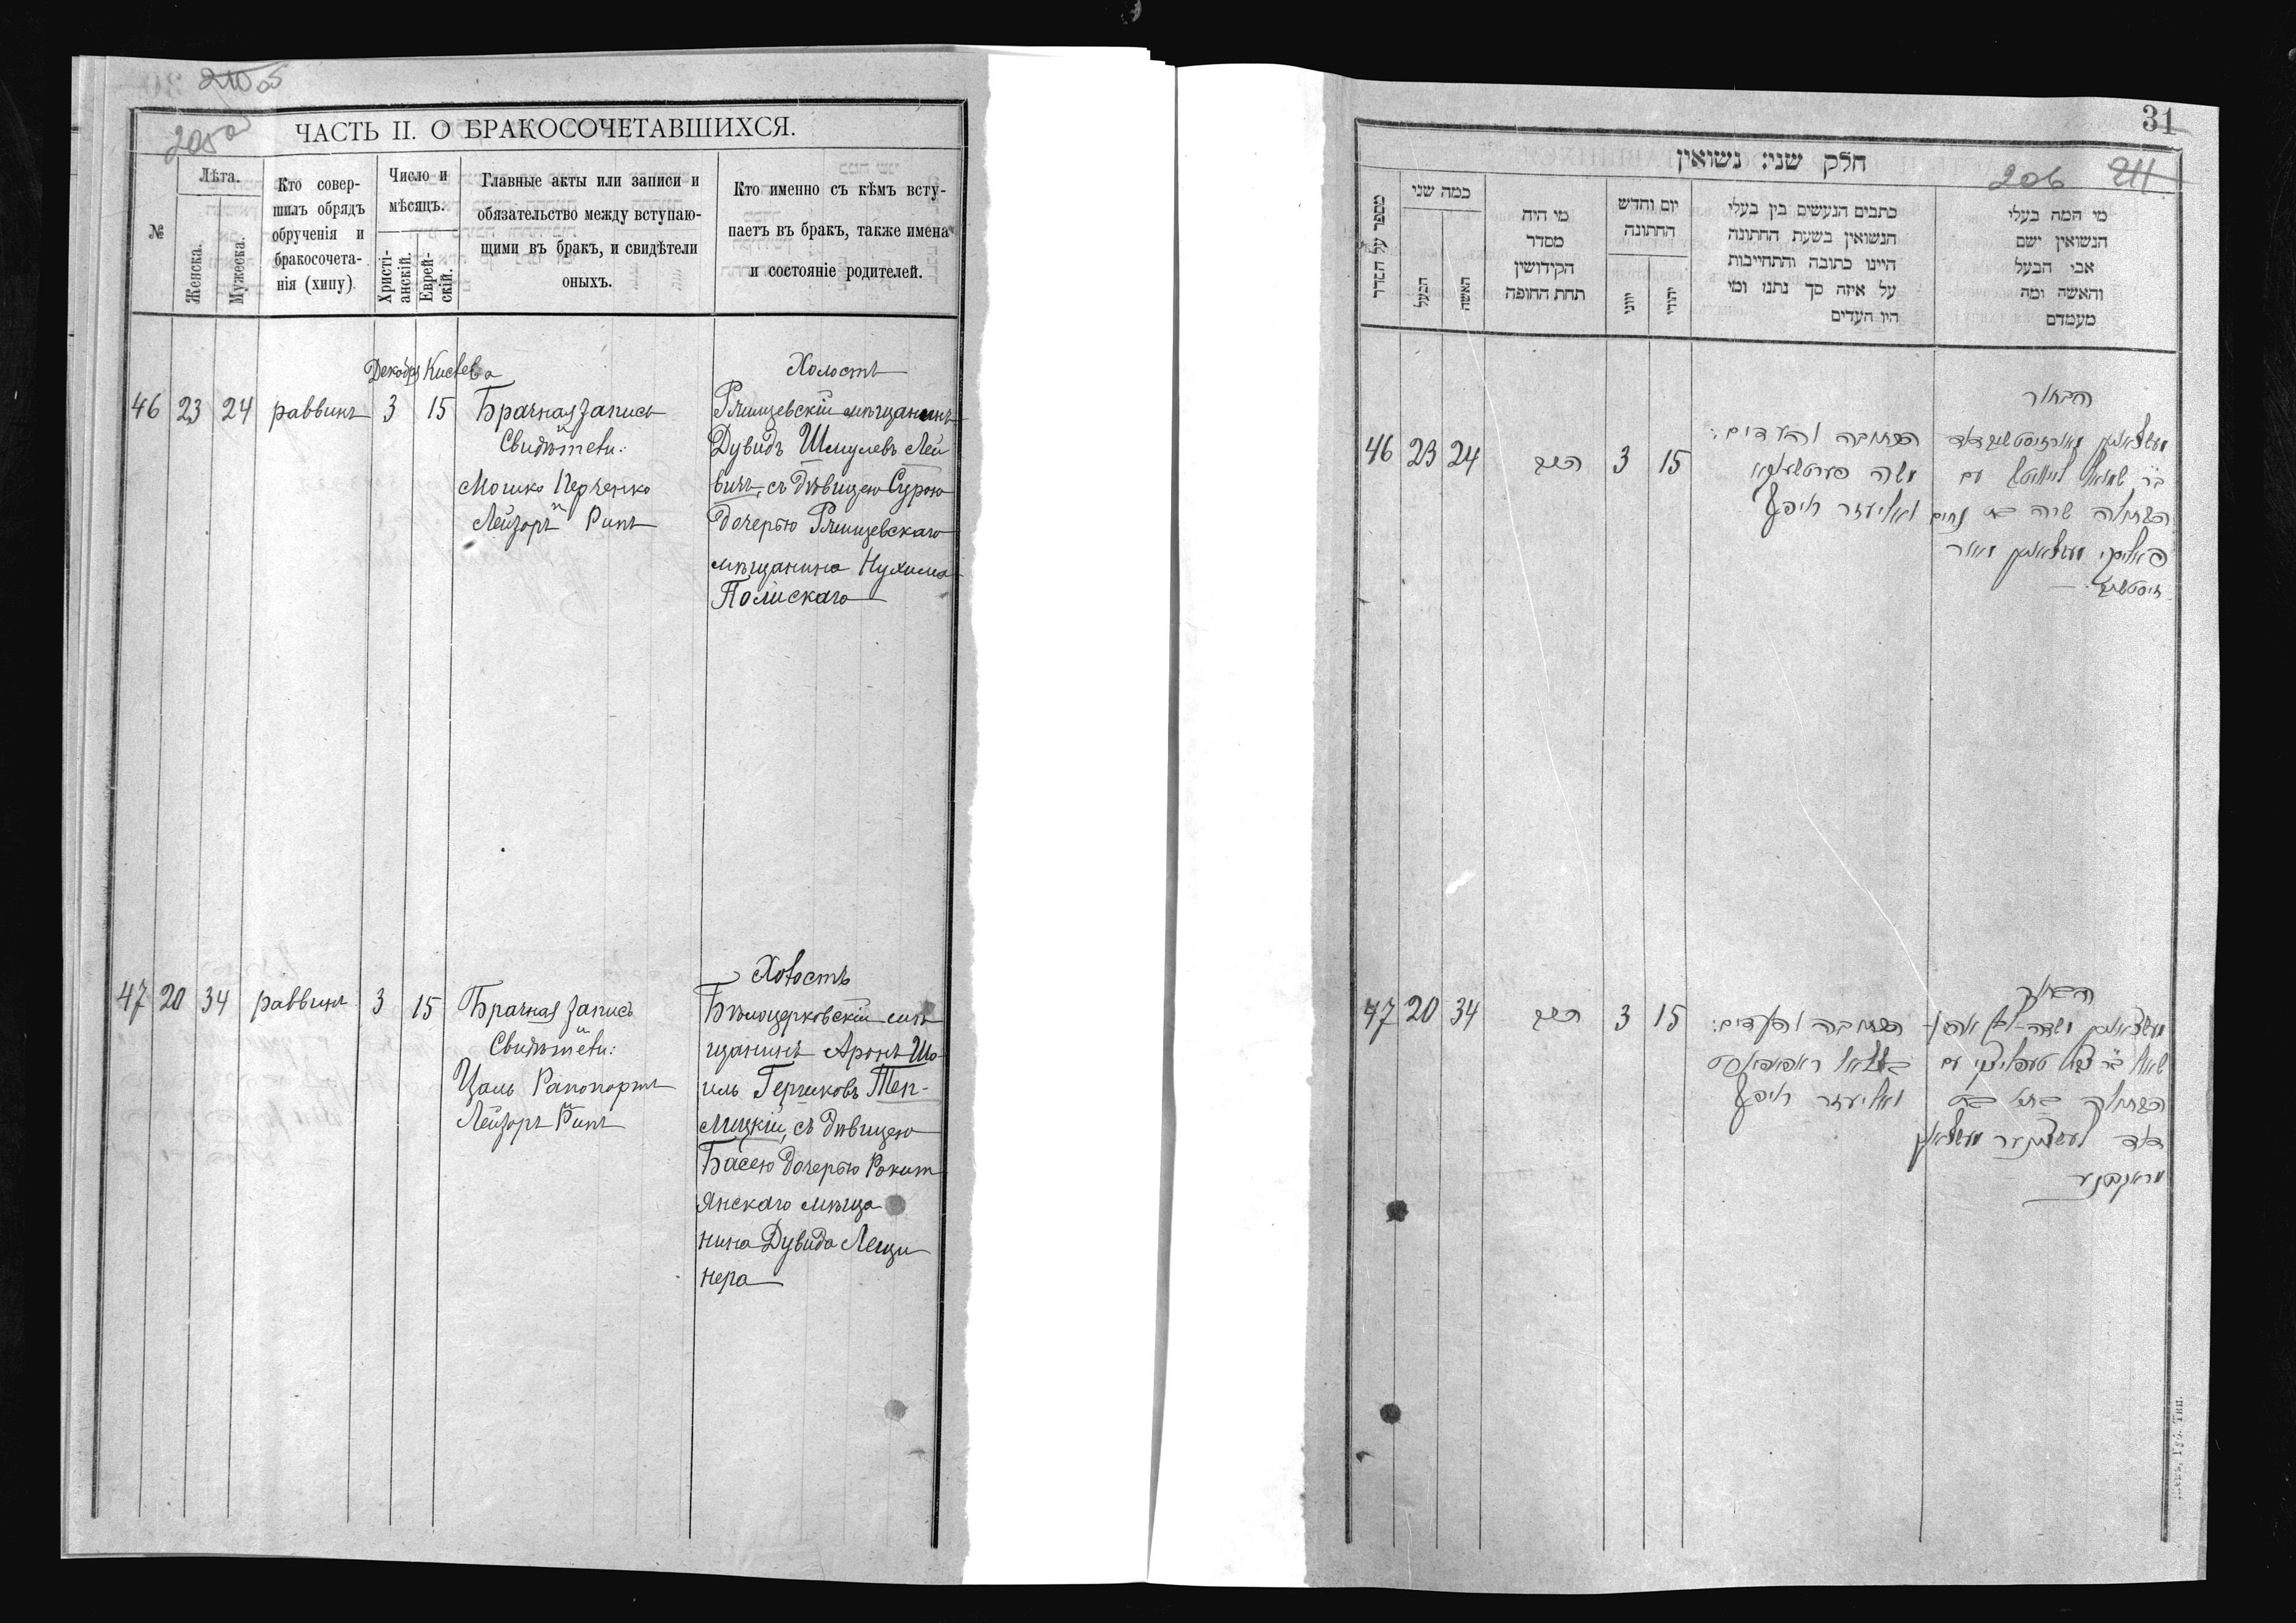 205
205а
ЧАСТЬ II. О БРАКОСОЧЕТАВШИХСЯ.
№
Лѣта.
Женска.
Мужеска.
Кто совер-
шилъ обрядъ
обрученія и
бракосочета-
нія (хипу)
Число и
мѣсяцъ.
Христі-
анскій.
Еврей-
скій.
Главные акты или записи и
обязательство между вступаю-
щими въ бракъ, и свидѣтели
оныхъ.
Кто именно съ кѣмъ всту-
паетъ въ бракъ, также имена
и состояніе родителей.
Декабря Кислева
Холостъ
46 23 24 раввинъ 3 15
Брачная запись
Свидѣтели:
Мошко Перченко
Лейзоръ Рипъ
Ржищевскій мѣщанинъ
Дувидъ Шмулевъ Лей
бичъ, съ дѣвицею Сурою
дочерью Ржищевскаго
мѣщанина Нухима
Полискаго
47 20 34 раввинъ 3 15
Брачная запись
Свидѣтели:
Цаль Рапопортъ
Лейзоръ Рипъ
Холостъ
Бѣлоцерковскій мѣ
щанинъ Аронъ Шо
иль Гершковъ Теп-
лицкій, съ дѣвицею
Басею дочерью Рокит
янскаго мѣща
нина Дувида Лещи
нера
31
206 211
חלק שני: נשואין
מספר על הסדר
כמה שני
הבעל
האשה
מי היה
מסדר
הקידושין
תחת החופה
יום וחדש
החתונה
יווני
יהודי
כתבים הנעשים בין בעלי
הנשואין בשעת החתונה
היינו כתובה והתחייבות
על איזה סך נתנו ומי
היו העדים
מי המה בעלי
הנשואין ושם
אבי הבעל
והאשה ומה
מעמדם
46 23 24 הרב 3 15
הכתובה והעדים:
משה פערטשענקא
ואליעזר ריפ
הבחור
בר שמואל לייביטש עם
הבתולה שרה בת נחום
47 20 34 הרב 3 15
הכתובה והעדים:
בצלאל ראפאפארט
ואליעזר ריפ
הבחור
שאול בר צבי טעפליצקי עם
הבתולה באסי בת
דוד לעשצינער